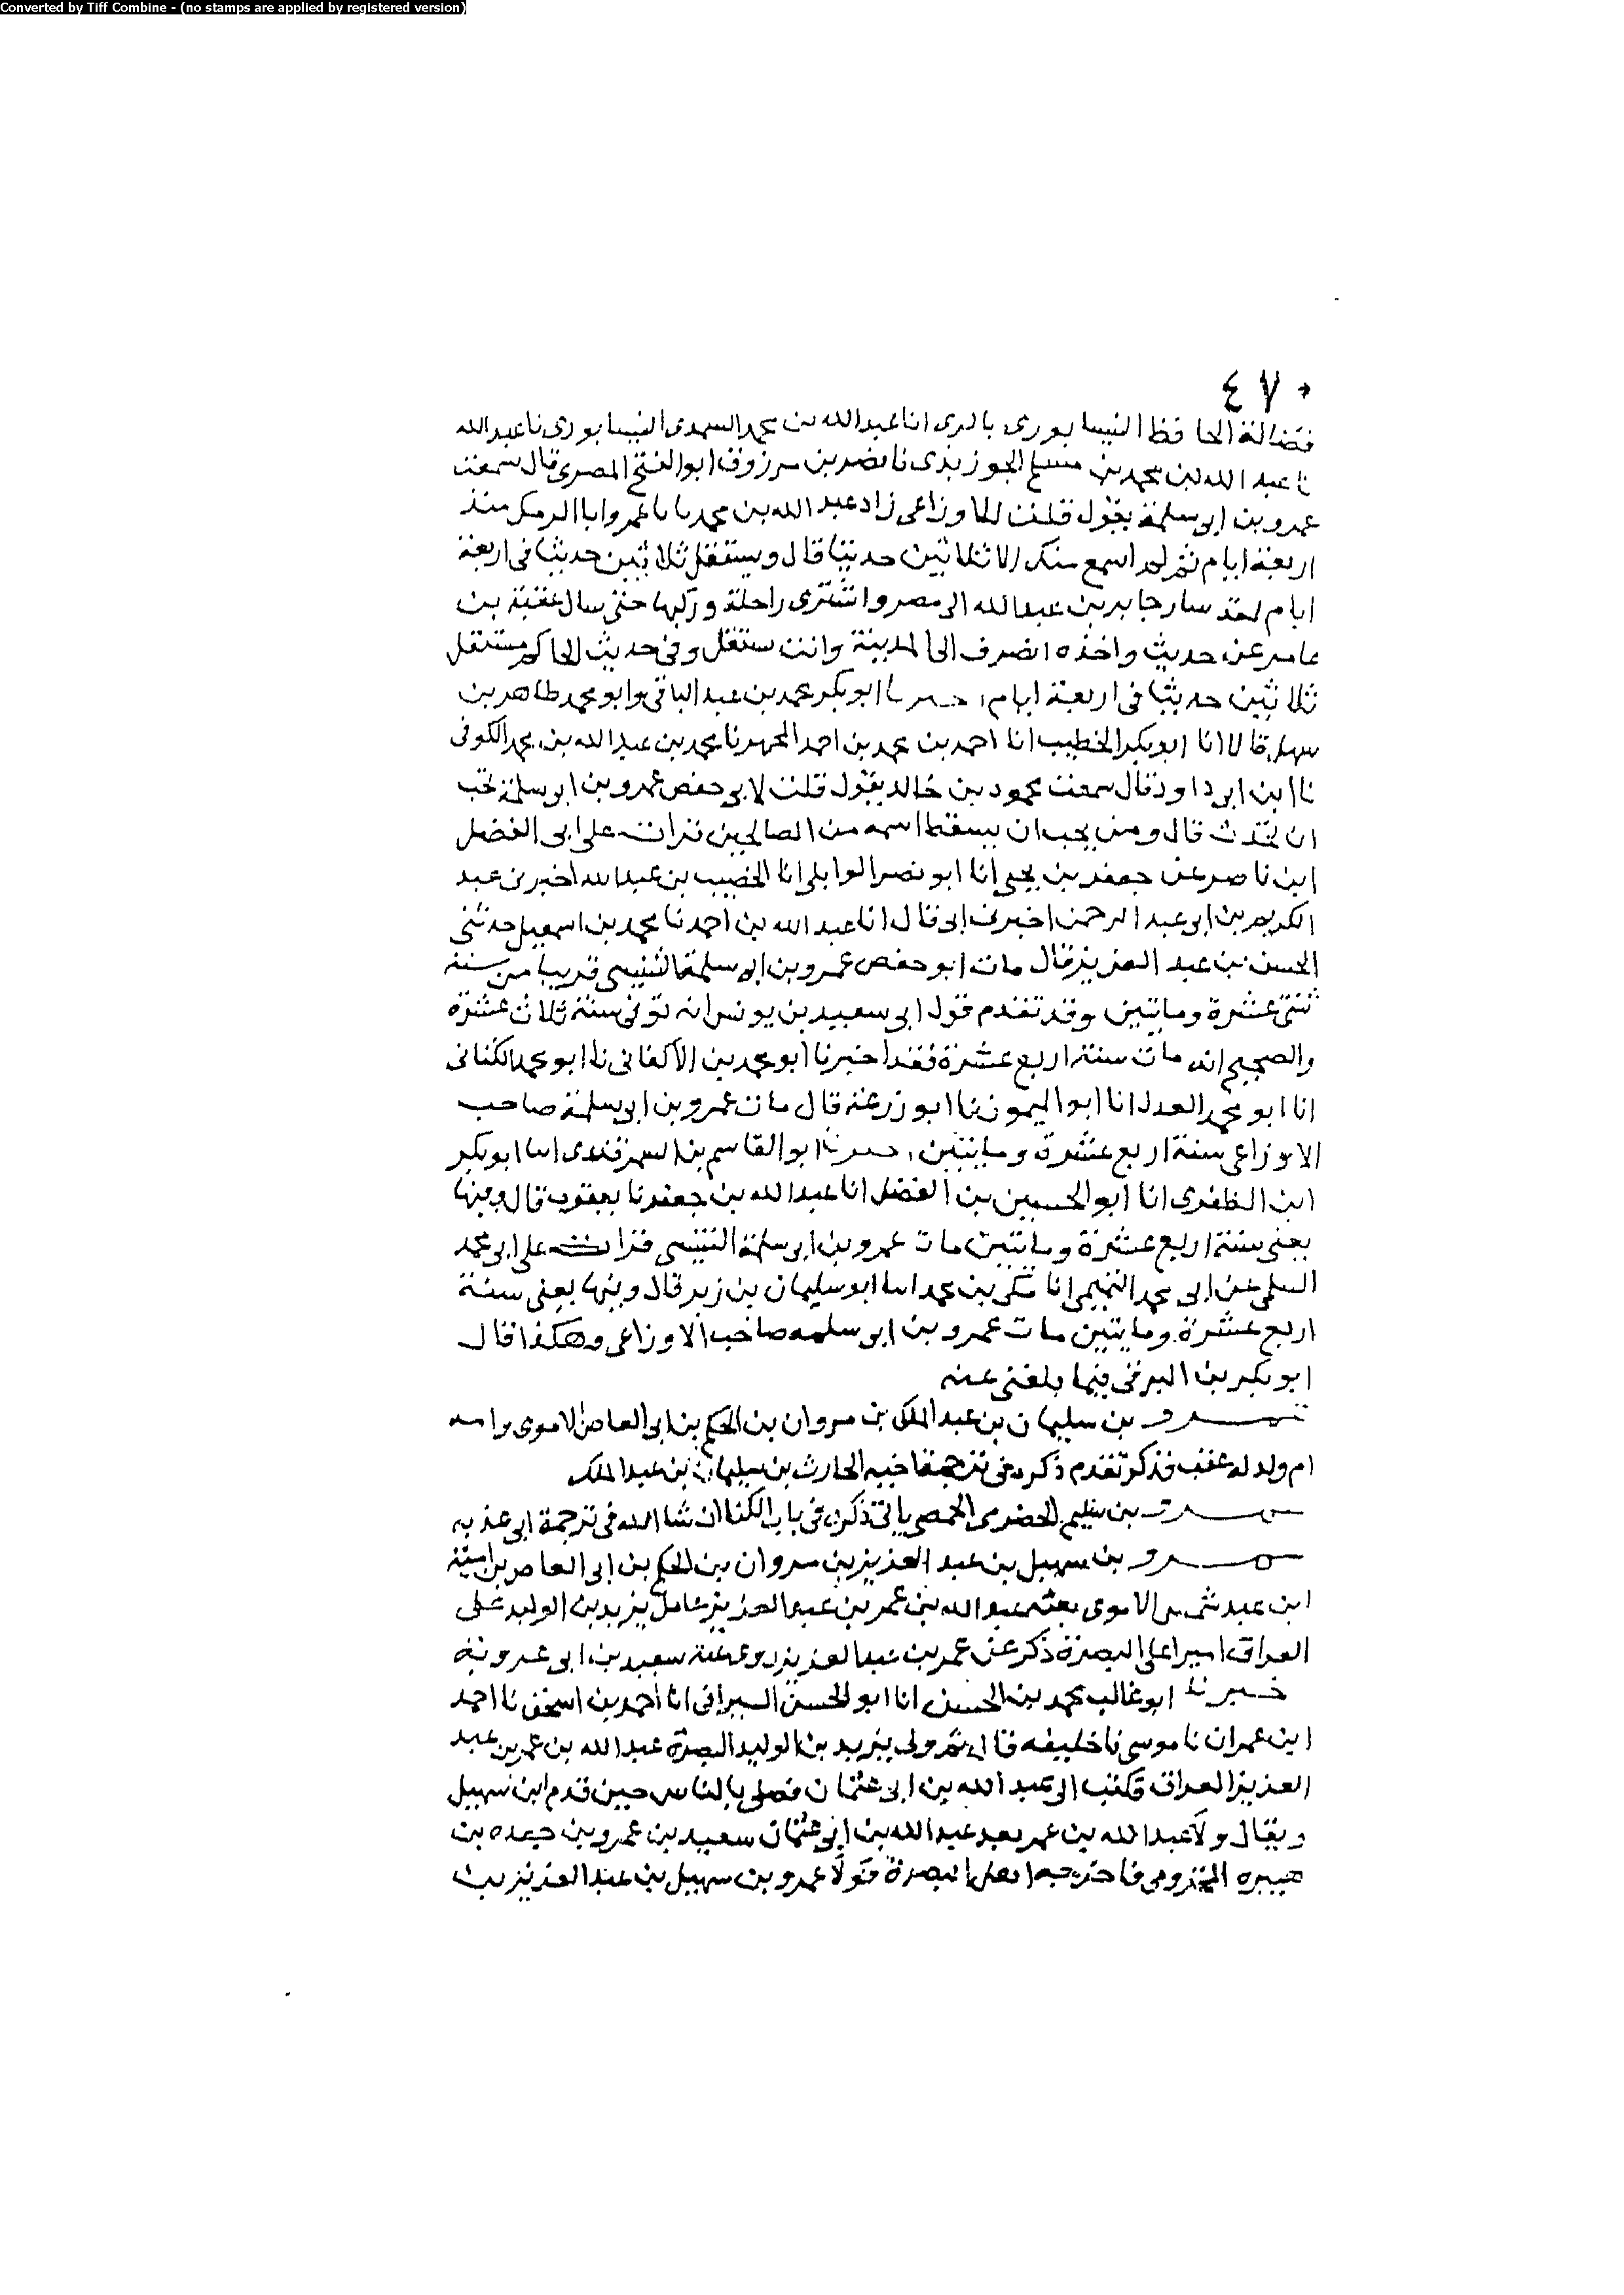 Converted by Tiff Combine - (no stamps are applied by registered version)
٤٧٠
فضالة الحافظ النيسابوري بالري انا عبد الله بن محمد السمدى النيسابوري نا عبد الله
نا عبد الله بن محمد بن مسلم الجوزبذى نا نصر بن مرزوق ابو الفتح المصرى قال سمعت
عمرو بن ابى سلمة يقول قلت للاوزاعى زاد عبد الله بن محمد يا با عمرو انا الزمك منذ
اربعة ايام ثم لم اسمع منك الا ثلاثين حديثا قال وتستقل ثلاثين حديثا فى اربعة
ايام لقد سار جابر بن عبد الله الى مصر واشترى راحلة وركبها حتى سال عقبة بن
عامر عن حديث واخذه انصرف الى المدينة وانت ستقل وفى حديث الحاكم مستقل
ثلاثين حديثا فى اربعة ايام، ابو بكر محمد بن عبد الباقى وابو محمد طاهر بن
سهل قالا انا ابو بكر الخطيب انا احمد بن محمد بن احمد المجهز نا محمد بن عبيد الله بن محمد الكوفى
نا ابن ابى داود قال سمعت محمود بن خالد يقول قلت لابى حفص عمرو بن ابو سلمة تحب
ان تحدث قال ومن يحب ان يسقط اسمه من الصالحين قرات على ابى الفضل
ابن ناصر عن جعفر بن يحيى انا ابو نصر الوابلى انا الخصيب بن عبد الله اخبرنى عبد
الكريم بن ابى عبد الرحمن اخبرنى ابى قال انا عبد الله بن احمد نا محمد بن اسمعيل حدثنى
الحسن بن عبد العزيز قال مات ابو حفص عمرو بن ابى سلمة التنيسى قريبا من سنة
ثنتى عشرة وماتين وقد تقدم قول ابى سعيد بن يونس انه توفى سنة ثلاث عشرة
والصحيح انه مات سنة اربع عشرة فقد اخبرنا ابو محمد بن الاكفانى نا ابو محمد الكتانى
انا ابو محمد العدل انا ابو الميمون نا ابو زرعة قال مات عمرو بن ابى سلمة صاحب
الاوزاعى سنة اربع عشرة وماتين، ابو القاسم بن السمرقندى انا ابو بكر
ابن الظفرى انا ابو الحسين بن الفضل انا عبد الله بن جعفر نا يعقوب قال وفيها
يعنى سنة اربع عشرة وماتين مات عمرو بن ابى سلمة التنيسى قرات على ابى محمد
السلمى عن ابى محمد التميمى انا مكى بن محمد انا ابو سليمان بن زبر قال وفيها يعنى سنة
اربع عشرة وماتين مات عمرو بن ابى سلمه صاحب الاوزاعى وهكذا قال
ابو بكر بن البرقى فيما بلغنى عنه
عمرو بن سليمان بن عبد الملك بن مروان بن الحكم بن ابى العاص الاموى وامه
ام ولد له عقب فذكر تقدم ذكره فى ترجمة اخيه الحارث بن سليمان بن عبد الملك
عمرو بن سليم الحضرمى الحمصى ياتى ذكره فى باب الكنا ان شا الله فى ترجمة ابى عذبه
عمرو بن سهيل بن عبد العزيز بن مروان بن الحكم بن ابى العاص بن امية
ابن عبد شمس الاموى بعثه عبد الله بن عمر بن عبد العزيز عامل يزيد بن الوليد على
العراق اميرا على البصرة ذكر عن عمر بن عبد العزيز روى عنه سعيد بن ابى عروبة
خبرنا ابو غالب محمد بن الحسن انا ابو الحسن السيرافى انا احمد بن اسحق نا احمد
ابن عمران نا موسى نا خليفه قال ثم ولى يزيد بن الوليد البصرة عبد الله بن عمر بن عبد
العزيز العراق فكتب الى عبد الله بن ابى عثمان فصلى بالناس حين قدم ابن سهيل
ويقال ولا عبد الله بن عمر بعد عبد الله بن ابى عثمان سعيد بن عمرو بن جعده بن
هبيره المخزومى فاخرجه اهل البصرة فولا عمرو بن سهيل بن عبد العزيز بن